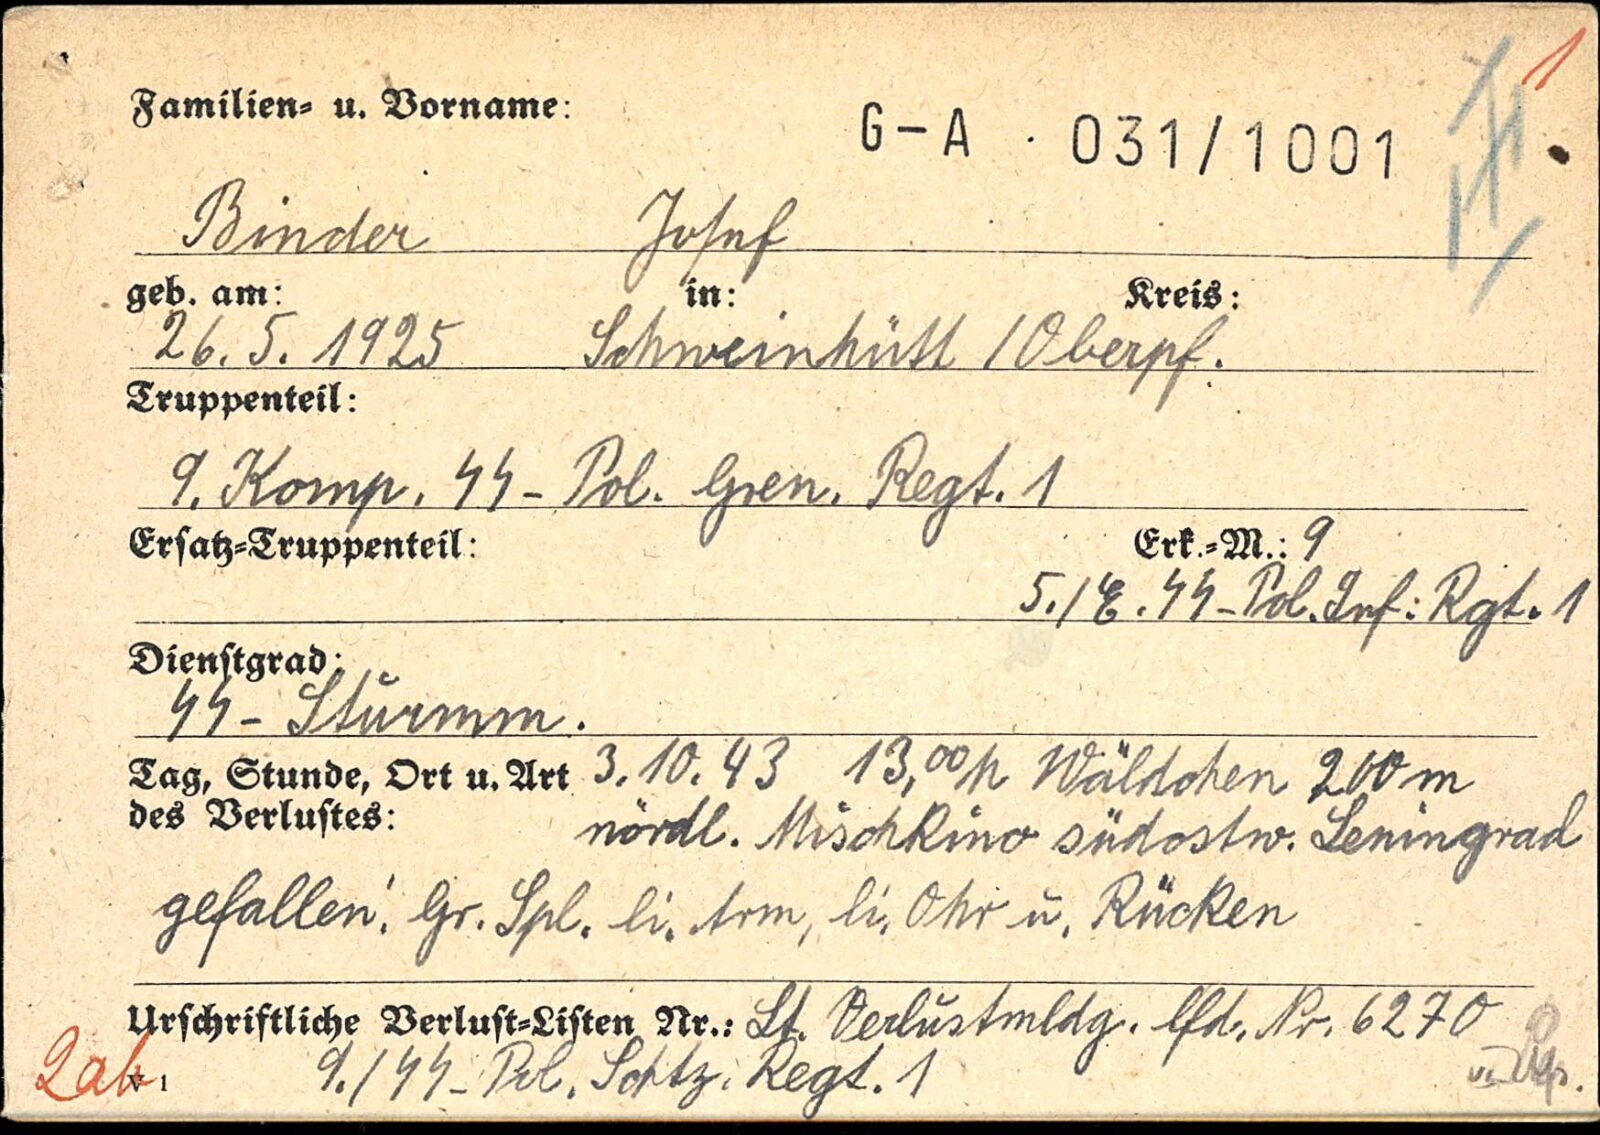 1
Familien- u. Vorname:
G-A · 031/1001
Binder Josef
geb. am: in: Kreis:
26.5.1925 Schweinhütt / Oberpf.
Truppenteil:
9. Komp. SS-Pol. Gren. Regt. 1
Ersatz-Truppenteil: Erk.-M.: 9
5./E. SS-Pol. Inf. Rgt. 1
Dienstgrad:
SS-Sturmm.
Tag, Stunde, Ort u. Art 3.10.43 13,00 h Wäldchen 200 m
des Verlustes: nördl. Mischkino südostw. Leningrad
gefallen! Gr. Spl. li. Arm, li. Ohr u. Rücken
Urschriftliche Verlust-Listen Nr.: Lt. Verlustmldg. lfd. Nr. 6270
9./SS-Pol. Schtz. Regt. 1
2ab
V 1